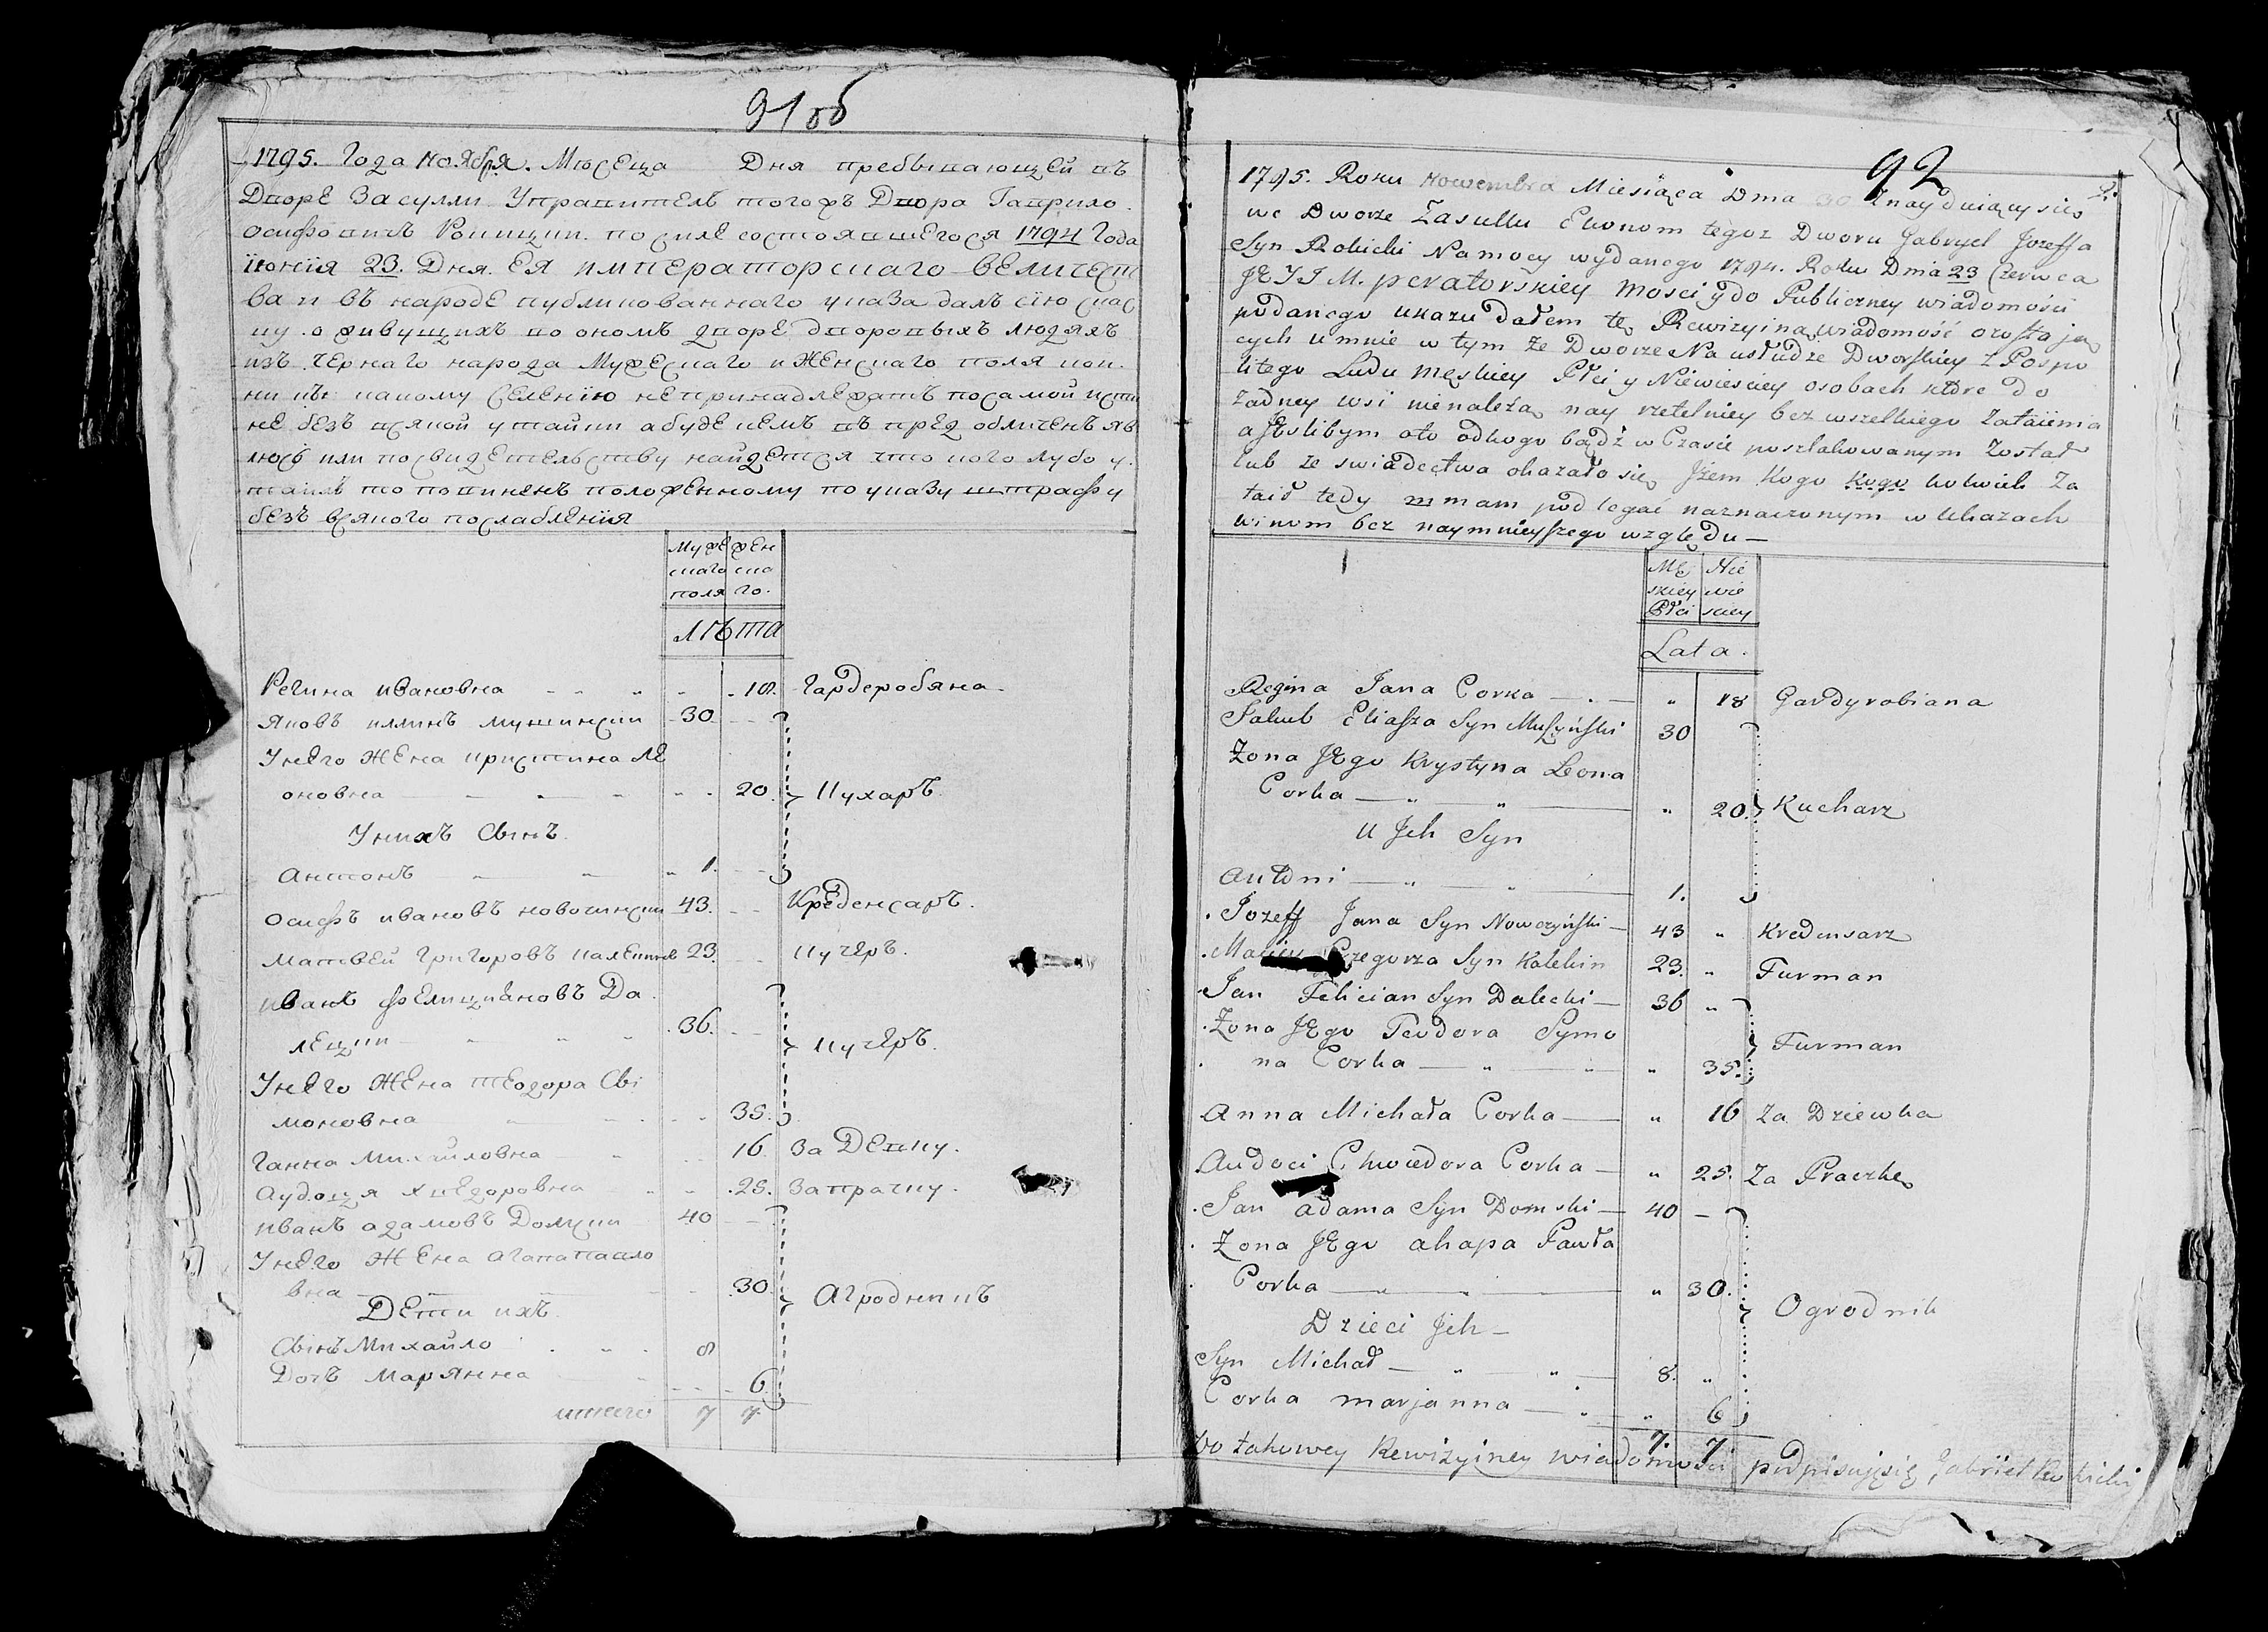 91 об
1795. Года Ноября. Месеца Дня пребывающей въ
Дворе Засулли Управитель тогожъ Двора Гаврило.
Осифовичъ Рокицки. по силе состоявшегося 1794 Года
Iюнiя 23. Дня. Ея императорскаго величест
ва и въ народе публикованнаго указа далъ сiю скас
ку о живущихъ во ономъ дворе дворовыхъ людяхъ
изъ чернаго народа Мужескаго и Женскаго поля кои.
ни къ какому селенiю непринадлежатъ посамой исти
не безъ всякой утайки а буде кемъ въ пред обличенъ яв
люсь или по свидетельству найдется что кого либо у.
таилъ то повиненъ положенному по указу штрафу
безъ всякого послабленiя
Муже жен
скаго ска
поля го.
лѣта
Регина Ивановна 18. Гардеробяна.
Яковъ илинъ мушински 30
Унего Жена кристина Ле
оновна 20. Кухаръ.
Унихъ Сынъ.
Антонъ 1.
Осифъ ивановъ новочински 43. Креденсаръ.
Матвей Григоровъ 23. Кучеръ.
иванъ фелициановъ Да
лецки 36. Кучеръ.
Унего Жена теодора Си
моновна 35.
Ганна Михайловна 16 За Девку.
Аудоця хведоровна 25. За прачку.
иванъ адамовъ Домски 40
Унего Жена агапа павло
вна 30 Агродникъ
Дети ихъ
Сынъ Михайло 8
Дочъ Марянна 6
итого 7 7
92
1795. Roku Nowembra Miesiąca Dnia 30 Znayduiący sie
we Dworze Zasullu Ekonom tegoz Dworu Gabryel Jozeffa
Syn Rokicki Na mocy wydanego 1794. Roku Dnia 23 Czerwca
JEJ IM. peratorskiey Mosci y do Publiczney wiadomości
podanego ukazu dałem tę Rewizyiną wiadomość o zostają
cych u mnie w tym ze Dworze Na usłudze Dworskiey z Pospo
litego Ludu Męskiey Płci y Niewiesciey osobach ktore do
żadney wsi nienależą nay rzetelniey bez wszelkiego Zataiienia
a Jeslibym oto odkogo bądź w Czasie poszlakowanym został
lub ze swiadectwa okazało się Jżem Kogo Kogo kolwiek Za
taił tedy m mam podlegać naznaczonym w Ukazach
winom bez naymnieyszego względu —
Mę Nie
skiey wie
Płci sciey
Lata.
Regina Jana Corka — " 18 Gardyrobiana
Jakub Eliasza Syn Muszyński 30
Żona JEgo Krystyna Leona
Corka — " 20. Kucharz
U Jch Syn
Antoni — 1.
Jozeff Jana Syn Nowczyński — 43 " Kredensarz
Grzegorza Syn Kalekin 23. " Furman
Jan Felician Syn Dalecki — 36 "
Żona JEgo Teodora Symo
na Corka — " 35. Furman
Anna Michała Corka — " 16 Za Dziewka
Audoci Chwiedora Corka — " 25. Za Praczke
Jan adama Syn Domski — 40 —
Żona JEgo ahapa Pawła
Corka — " 30. Ogrodnik
Dzieci Jch —
Syn Michał — 8. "
Corka marjanna — " 6
7. 7.
Do takowey Rewizyiney wiadomości podpisuję się Gabriel Rokicki